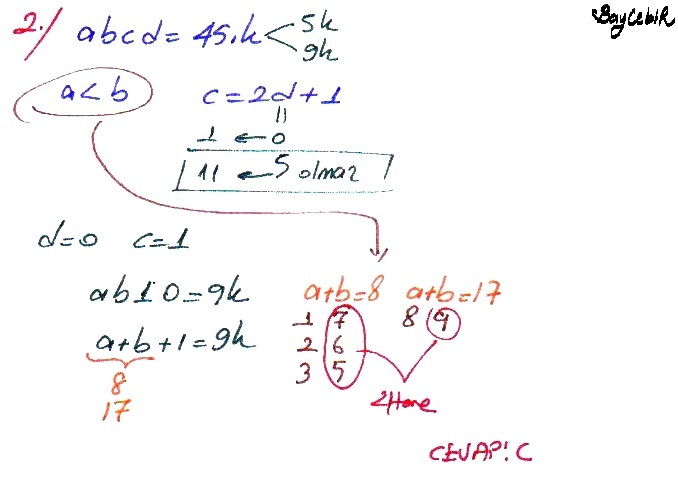 BayCebiR
2.) abcd = 45.k < 5k
9k
a < b c = 2d + 1
=
1 ← 0
11 ← 5 olmaz
d=0 c=1
ab10 = 9k a+b=8 a+b=17
1 7 8 9
a+b+1=9k 2 6
8 3 5
17
CEVAP: C